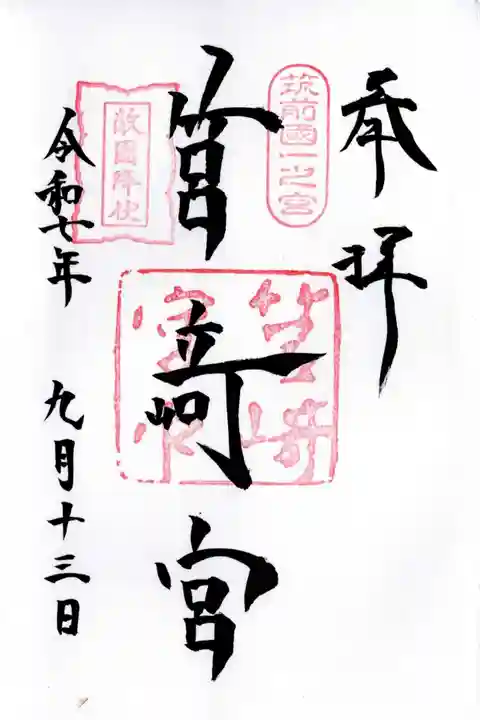 奉拝
筑前國一之宮
筥﨑宮
敵國降伏
令和七年 九月十三日